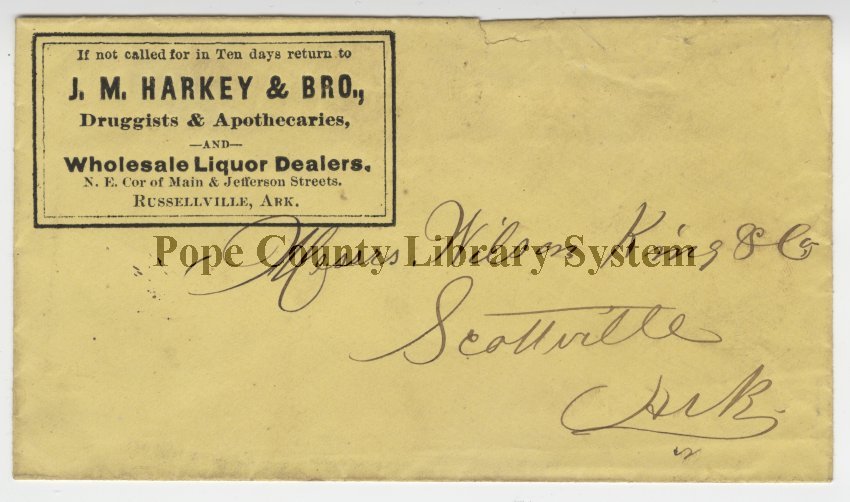 If not called for in Ten days return to
J. M. HARKEY & BRO.,
Druggists & Apothecaries,
—AND—
Wholesale Liquor Dealers.
N. E. Cor of Main & Jefferson Streets.
RUSSELLVILLE, ARK.
Messrs. Wilson King & Co
Pope County Library System
Scottville
Ark.